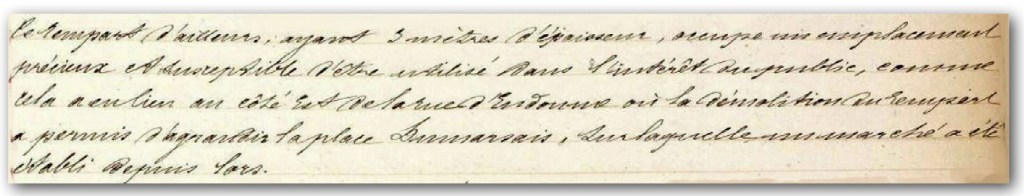 Ce rempart d'ailleurs, ayant 3 mètres d'épaisseur, occupe un emplacement
précieux et susceptible d'être utilisé dans l'intérêt du public, comme
cela a eu lieu au côté Est de la rue d'Endoume où la démolition du rempart
a permis d'agrandir la place Dumarsais, sur laquelle un marché a été
établi depuis lors.